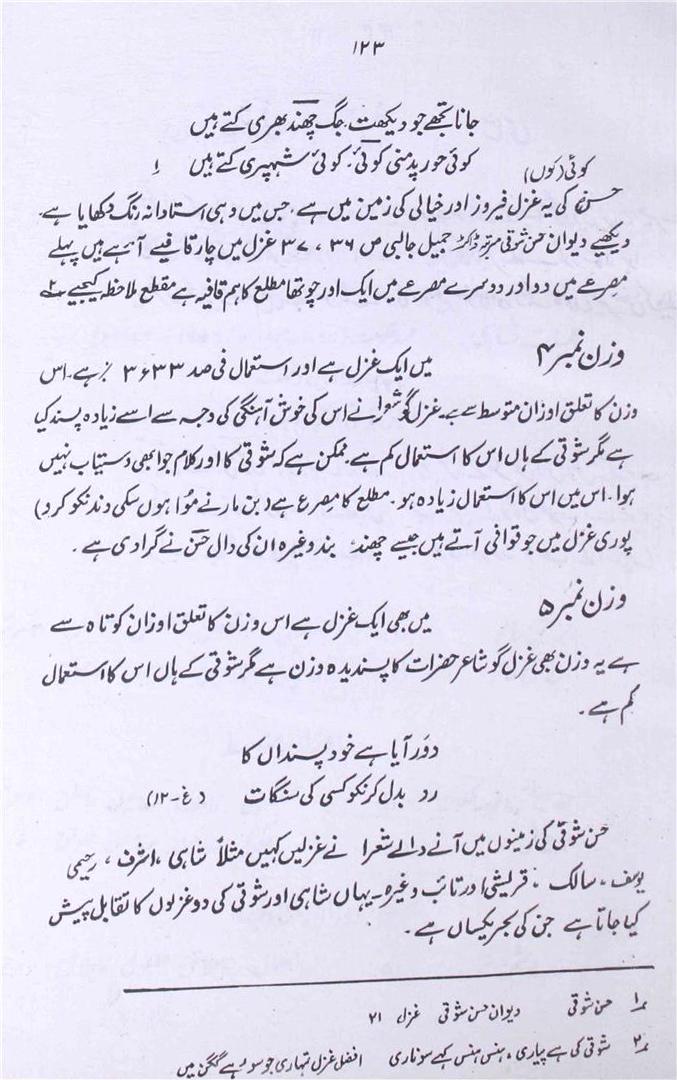 ۱۲۳
جانا تجھے جو دیکھت، جگ چھند بھری کتے ہیں
کوئی (توں) کوئی حور پدمنی کوئی۔ کوئی شہپری کتے ہیں ۱
حسن کی یہ غزل فیروز اور خیالی کی زمین میں ہے، جس میں وہی استادانہ رنگ دکھایا ہے۔
دیکھیے دیوان حسن شوقی مرتبہ ڈاکٹر جمیل جالبی ص ۳۶، ۳۷ غزل میں چار قافیے آئے ہیں پہلے
مصرعے میں دو اور دوسرے مصرعے میں ایک اور چوتھا مطلع کا ہم قافیہ ہے مقطع ملاحظہ کیجیے ۲
وزن نمبر ۴ میں ایک غزل ہے اور استعمال فی صد ۳۶۳۳ ٪ ہے۔ اس
وزن کا تعلق اوزان متوسط سے ہے غزل گو شعرا نے اس کی خوش آہنگی کی وجہ سے اسے زیادہ پسند کیا
ہے مگر شوقی کے ہاں اس کا استعمال کم ہے۔ ممکن ہے کہ شوقی کا اور کلام جو ابھی دستیاب نہیں
ہوا۔ اس میں اس کا استعمال زیادہ ہو۔ مطلع کا مصرع ہے (بن مارنے موا ہوں سکی دند نکو کرد)
پوری غزل میں جو قوافی آتے ہیں جیسے چھند بند وغیرہ ان کی دال حسن نے گرا دی ہے۔
وزن نمبر ۵ میں بھی ایک غزل ہے اس وزن کا تعلق اوزان کوتاہ سے
ہے یہ وزن بھی غزل گو شاعر حضرات کا پسندیدہ وزن ہے مگر شوقی کے ہاں اس کا استعمال
کم ہے۔
دَور آیا ہے خود پسنداں کا
رد بدل کر نکو کسی کی سنگات (غ-۱۲)
حسن شوقی کی زمینوں میں آنے والے شعرا نے غزلیں کہیں مثلاً شاہی، اشرف، رحیمی
یوسف، سالک، قریشی اور تائب وغیرہ۔ یہاں شاہی اور شوقی کی دو غزلوں کا تقابل پیش
کیا جاتا ہے جن کی بحر یکساں ہے۔
۱ حسن شوقی دیوان حسن شوقی غزل ۲۱
۲ شوقی کی ہے پیاری، ہنس ہنس کہے سو ناری افضل غزل تہاری جو سو ہے گگن میں